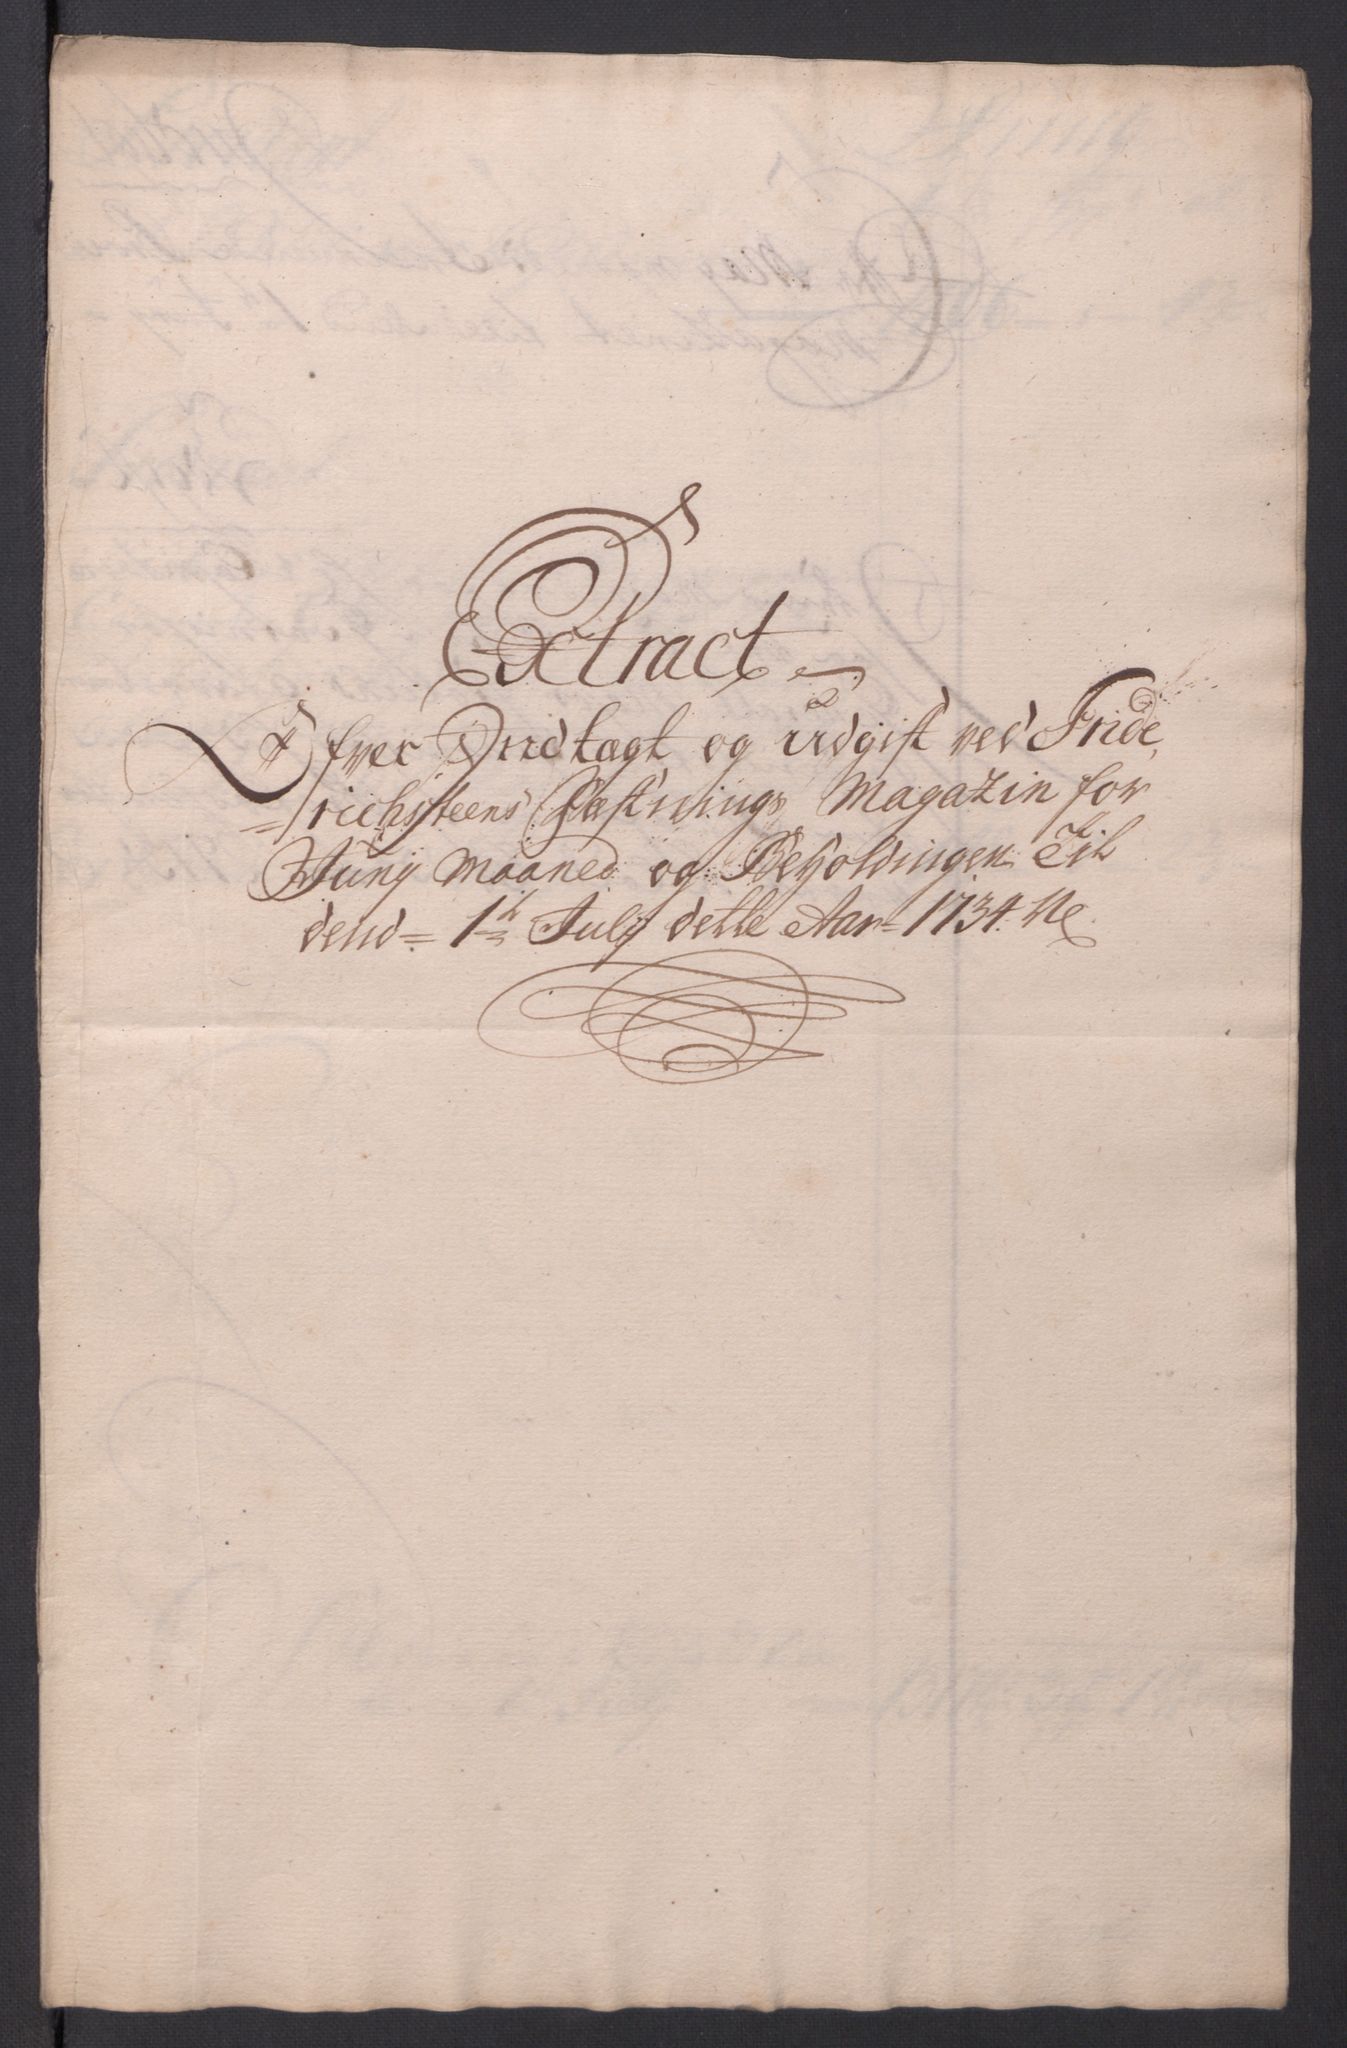 Extract
Ofver Indtægt og udgift ved Fride,
=richssteens Fæstnings Magazin for
Junij Maaned og Beholdingen Til
dend = 1te July dette Aar = 1734.